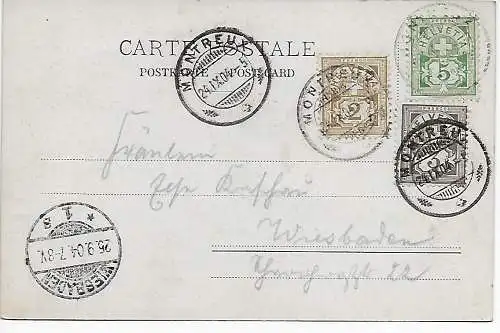 CARTE POSTALE
POSTKARTE POST-CARD
MONTREUX
24.IX.04.-5
MONTREUX
2
HELVETIA
5
MONTREUX
24.IX.04
Fräulein
Wiesbaden
22
WIESBADEN
26.9.04.7-8V.
* 1 s